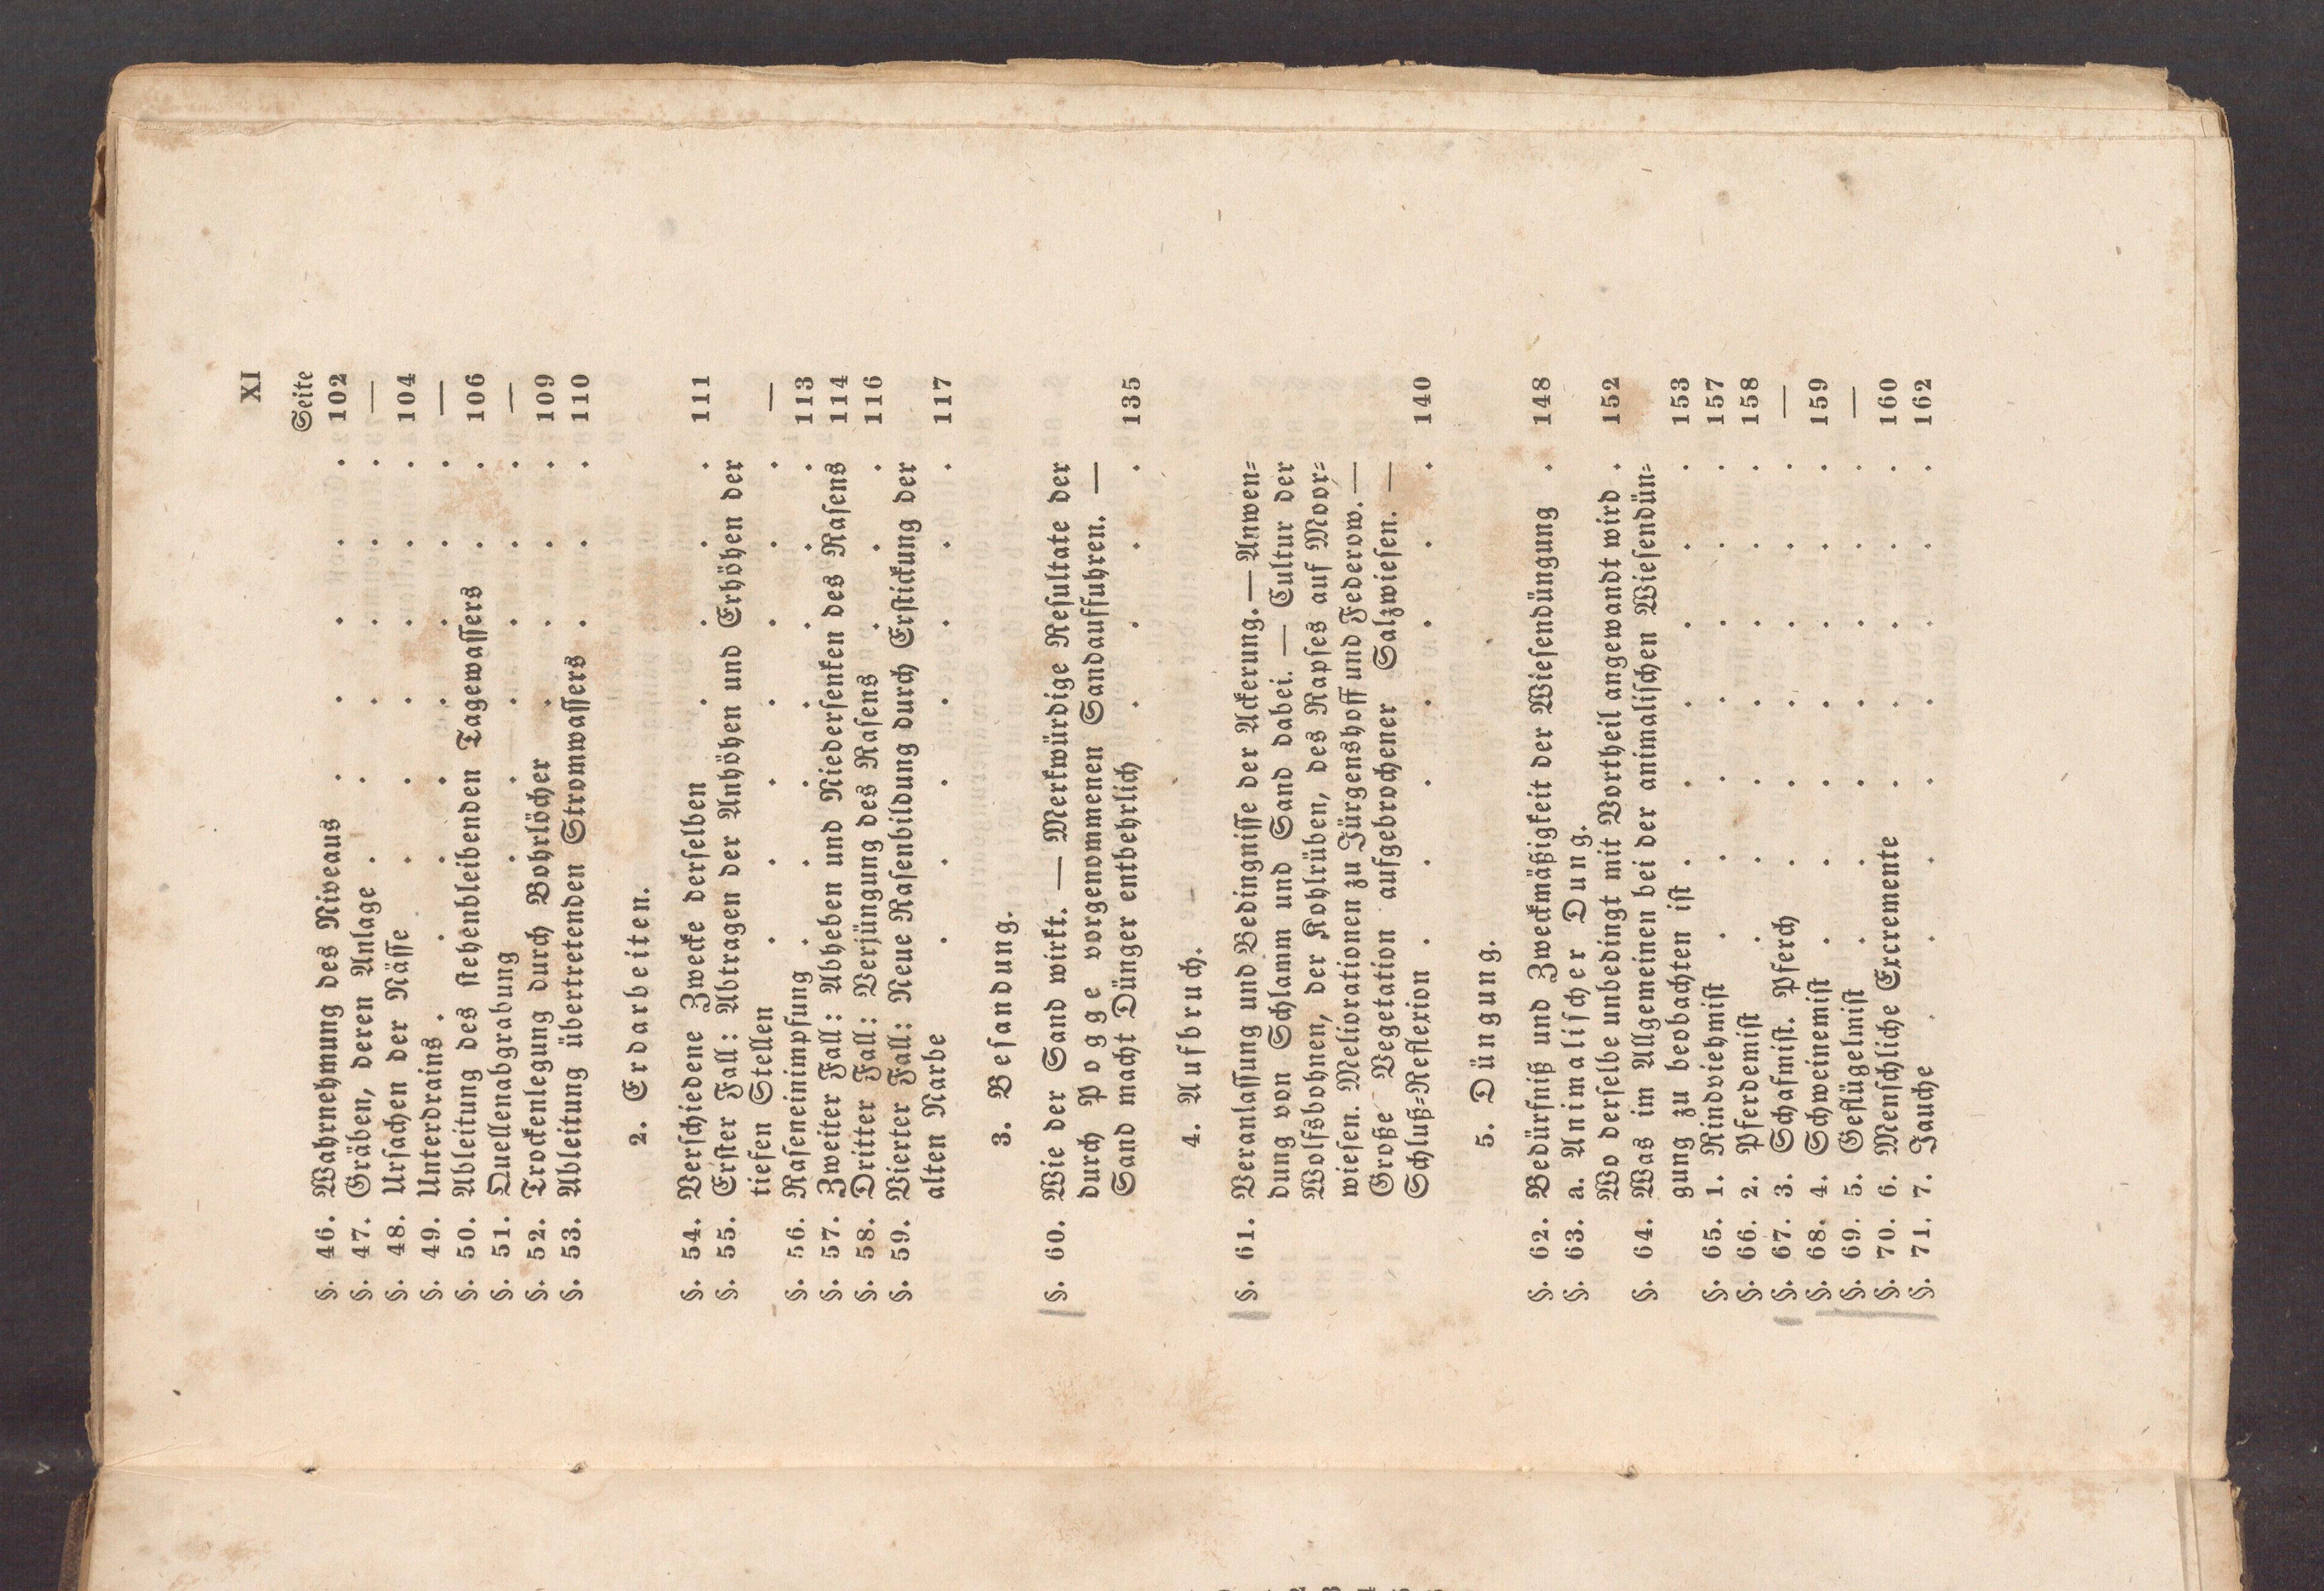 XI
Seite
§. 46. Wahrnehmung des Niveaus . . . . . 102
§. 47. Gräben, deren Anlage . . . . . . —
§. 48. Ursachen der Nässe . . . . . . 104
§. 49. Unterdrains . . . . . . . . —
§. 50. Ableitung des stehenbleibenden Tagewassers . . 106
§. 51. Quellenabgrabung . . . . . . —
§. 52. Trockenlegung durch Bohrlöcher . . . . 109
§. 53. Ableitung übertretenden Stromwassers . . . 110
2. Erdarbeiten.
§. 54. Verschiedene Zwecke derselben . . . . 111
§. 55. Erster Fall: Abtragen der Anhöhen und Erhöhen der
tiefen Stellen . . . . . . . —
§. 56. Raseneinimpfung . . . . . . 113
§. 57. Zweiter Fall: Abheben und Niedersenken des Rasens 114
§. 58. Dritter Fall: Verjüngung des Rasens . . . 116
§. 59. Vierter Fall: Neue Rasenbildung durch Erstickung der
alten Narbe . . . . . . . 117
3. Besandung.
§. 60. Wie der Sand wirkt. — Merkwürdige Resultate der
durch Pogge vorgenommenen Sandauffuhren. —
Sand macht Dünger entbehrlich . . . . 135
4. Aufbruch.
§. 61. Veranlassung und Bedingnisse der Ackerung. — Anwen=
dung von Schlamm und Sand dabei. — Cultur der
Wolfsbohnen, der Kohlrüben, des Rapses auf Moor=
wiesen. Meliorationen zu Jürgenshoff und Federow. —
Große Vegetation aufgebrochener Salzwiesen. —
Schluß=Reflexion . . . . . . . 140
5. Düngung.
§. 62. Bedürfniß und Zweckmäßigkeit der Wiesendüngung . 148
§. 63. a. Animalischer Dung.
Wo derselbe unbedingt mit Vortheil angewandt wird . 152
§. 64. Was im Allgemeinen bei der animalischen Wiesendün=
gung zu beobachten ist . . . . . . 153
§. 65. 1. Rindviehmist . . . . . . . 157
§. 66. 2. Pferdemist . . . . . . . 158
§. 67. 3. Schafmist. Pferch . . . . . . —
§. 68. 4. Schweinemist . . . . . . . 159
§. 69. 5. Geflügelmist . . . . . . . —
§. 70. 6. Menschliche Excremente . . . . . 160
§. 71. 7. Jauche . . . . . . . . 162